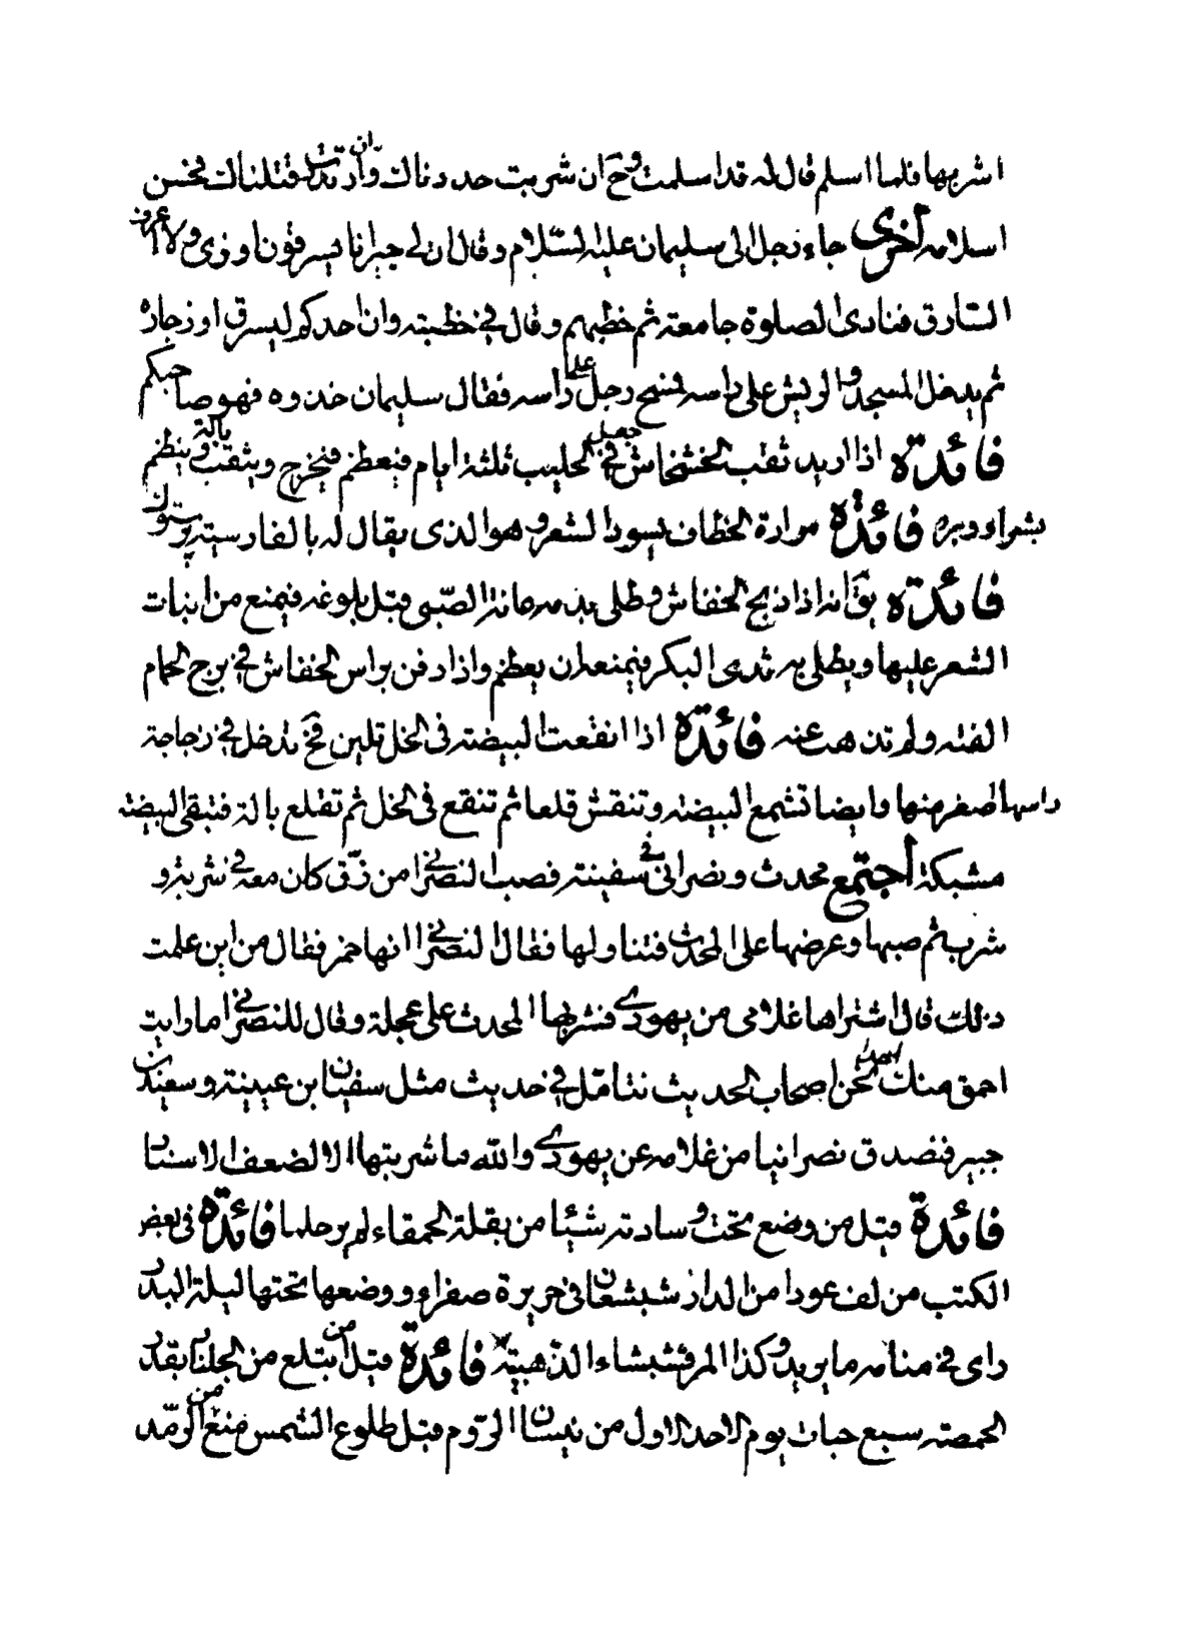 اشربها فلما اسلم قال له قد اسلمت وح ان شربت حددناك وان ارتدت قتلناك فحسن
اسلامه أخرى جاء رجل الى سليمان عليه السّلام وقال ان لى جيرانا يسرقون اوزى ولا اعرف
السّارق فنادى الصلوة جامعة ثم خطبهم وقال في خطبته وان احدكم ليسرق اوز جاره
ثم يدخل المسجد والريش على راسه فمسح رجل على راسه فقال سليمان خذوه فهو صاحبكم
فائدة اذا اريد ثقب الخشخاش جعل في الحليب ثلثة ايام فيعظم فيخرج ويثقب بالة وينظم
بشراو دبره فائدة مرارة الخطاف يسود الشعر وهو الذى يقال له بالفارسية پرستوك
فائدة يقَ انه اذا ذبح الخفاش وطلى بدمه عانة الصّبى قبل بلوغه فيمنع من انبات
الشعر عليها ويطلى به ثدى البكر فيمنعه ان يعظم واذا دفن براس الخفاش في برج الحمام
الفته ولم تذهب عنه فائدة اذا انقعت البيضة فى الخل تلين فحَ تدخل في زجاجة
راسها اصغر منها وايضا تشمع البيضة وتنقش قلعا ثم تنقع فى الخل ثم تقلع بالة فتبقى البيضة
مشبكة أجتمع محدث ونصرانى في سفينة فصب النصرانى من زقّ كان معه في شربة و
شرب ثم صبها وعرضها على المحدث فتناولها فقال النصرانى انها خمر فقال من اين علمت
ذلك قال اشتراها غلامى من يهودى فشربها المحدث على عجلة وقال للنصرانى ما رايت
احمق منك نحن اصحاب الحديث نتامّل في حديث مثل سفيان ابن عيينة وسعيد بن
جبير فنصدق نصرانيا من غلامه عن يهودى والله ما شربتها الا لضعف الاسناد
فائدة قيل من وضع تحت وسادته شيئا من بقلة الحمقاء لم ير حلما فائدة فى بعض
الكتب من لف عودا من الدار شيشعان فى حريرة صفراء ووضعها تحتها ليلة البدر
راى في منامه ما يريد وكذا المرقشيشاء الذّهبية فائدة قيل من ابتلع من الجلنار بقدر
الحمصة سبع حبات يوم الاحد الاول من نيسان الرّوم قبل طلوع الشمس منع من الرّمد